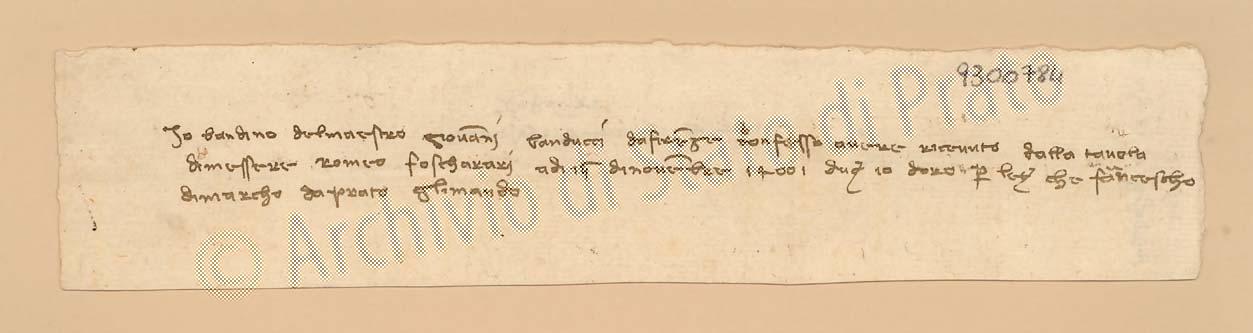 9300784
Io bandino delmaestro giovāni banducci dafirēze confesso avere ricevuto dalla tavola
dimessere romeo foscharari adi ij dinovēbre 14001 duq̄ 10 doro p̄ ley che frācescho
dimarcho daprato glimando
© Archivio di Stato di Prato